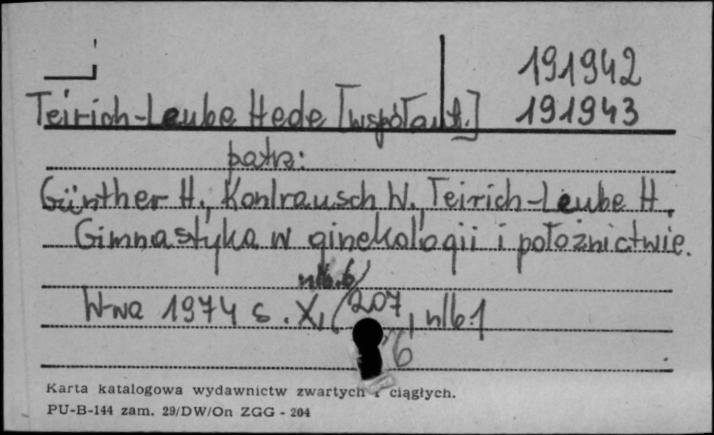 191942
Teirich-Leube Hede [współaut.] 191943
patrz:
Günther H., Konlrausch W., Teirich-Leube H.
Gimnastyka w ginekologii i położnictwie.
nlb.6
W-wa 1974 s. X, 207, nlb.1
6
Karta katalogowa wydawnictw zwartych i ciągłych.
PU-B-144 zam. 29/DW/On ZGG - 204